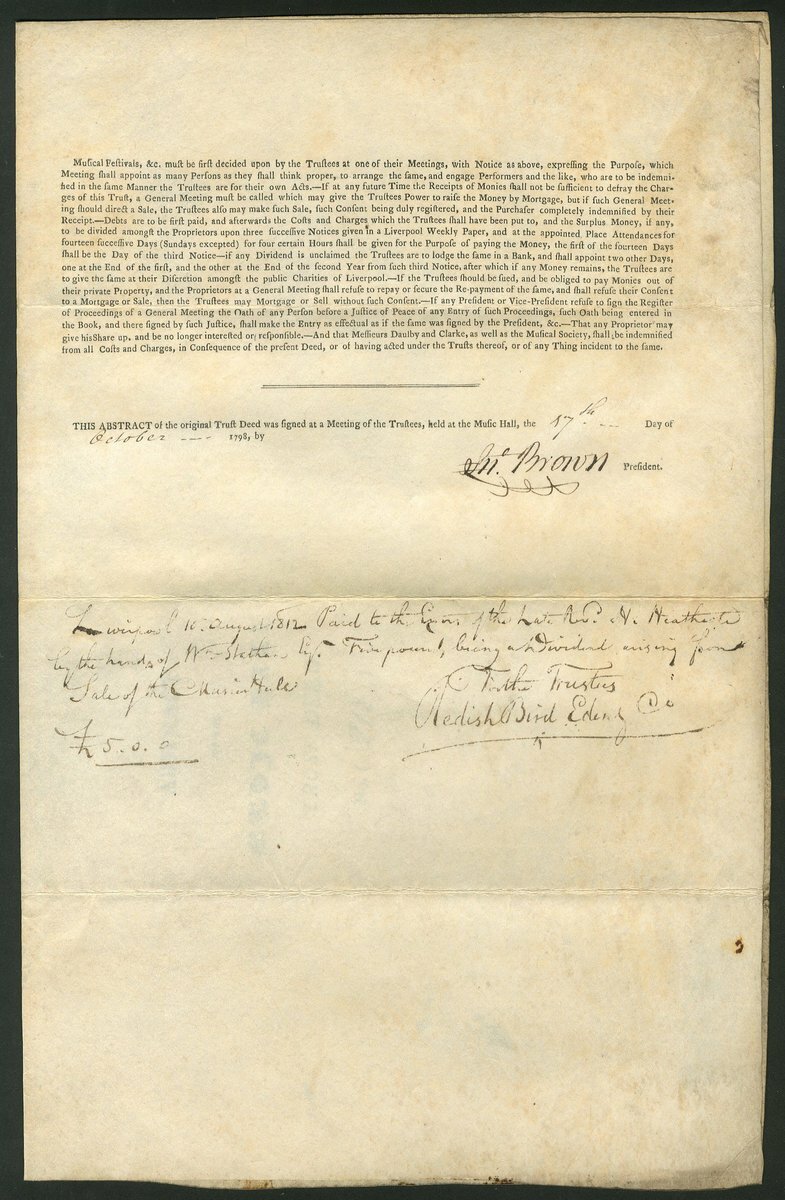 Muſical Feſtivals, &c. muſt be firſt decided upon by the Truſtees at one of their Meetings, with Notice as above, expreſſing the Purpoſe, which
Meeting ſhall appoint as many Perſons as they ſhall think proper, to arrange the ſame, and engage Performers and the like, who are to be indemni-
fied in the ſame Manner the Truſtees are for their own Acts.—If at any future Time the Receipts of Monies ſhall not be ſufficient to defray the Char-
ges of this Truſt, a General Meeting muſt be called which may give the Truſtees Power to raiſe the Money by Mortgage, but if ſuch General Meet-
ing ſhould direct a Sale, the Truſtees alſo may make ſuch Sale, ſuch Conſent being duly regiſtered, and the Purchaſer completely indemnified by their
Receipt.—Debts are to be firſt paid, and afterwards the Coſts and Charges which the Truſtees ſhall have been put to, and the Surplus Money, if any,
to be divided amongſt the Proprietors upon three ſucceſſive Notices given in a Liverpool Weekly Paper, and at the appointed Place Attendances for
fourteen ſucceſſive Days (Sundays excepted) for four certain Hours ſhall be given for the Purpoſe of paying the Money, the firſt of the fourteen Days
ſhall be the Day of the third Notice—if any Dividend is unclaimed the Truſtees are to lodge the ſame in a Bank, and ſhall appoint two other Days,
one at the End of the firſt, and the other at the End of the ſecond Year from ſuch third Notice, after which if any Money remains, the Truſtees are
to give the ſame at their Diſcretion amongſt the public Charities of Liverpool.—If the Truſtees ſhould be ſued, and be obliged to pay Monies out of
their private Property, and the Proprietors at a General Meeting ſhall refuſe to repay or ſecure the Re-payment of the ſame, and ſhall refuſe their Conſent
to a Mortgage or Sale, then the Truſtees may Mortgage or Sell without ſuch Conſent.—If any Preſident or Vice-Preſident refuſe to ſign the Regiſter
of Proceedings of a General Meeting the Oath of any Perſon before a Juſtice of Peace of any Entry of ſuch Proceedings, ſuch Oath being entered in
the Book, and there ſigned by ſuch Juſtice, ſhall make the Entry as effectual as if the ſame was ſigned by the Preſident, &c.—That any Proprietor may
give his Share up, and be no longer intereſted or reſponſible.—And that Meſſieurs Daulby and Clarke, as well as the Muſical Society, ſhall be indemnified
from all Coſts and Charges, in Conſequence of the preſent Deed, or of having acted under the Truſts thereof, or of any Thing incident to the ſame.
THIS ABSTRACT of the original Truſt Deed was ſigned at a Meeting of the Truſtees, held at the Muſic Hall, the 17th Day of
October 1798, by
Jno. Brown Preſident.
Liverpool 10 August 1812 Paid to the Exors of the Late Revd. H. Heathcote
by the hands of Wm Statham Esq. Five pounds, being a Dividend arising from
Sale of the Music Hall
For the Trustees
Bird Eden & Co
£ 5.0.0